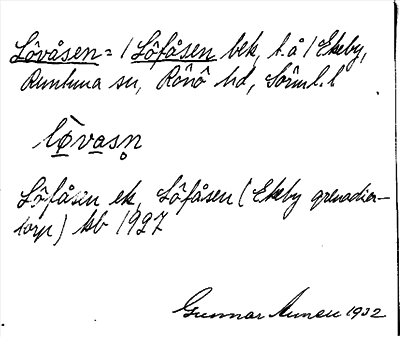 Lövåsen = / Löfåsen bek, t. å / Ekeby,
Runtuna sn, Rönö hd, Sörml. l
lövasn̥
Löfåsen ek, Löfåsen (Ekeby grenadier-
torp) kb 1927
Gunnar 1932